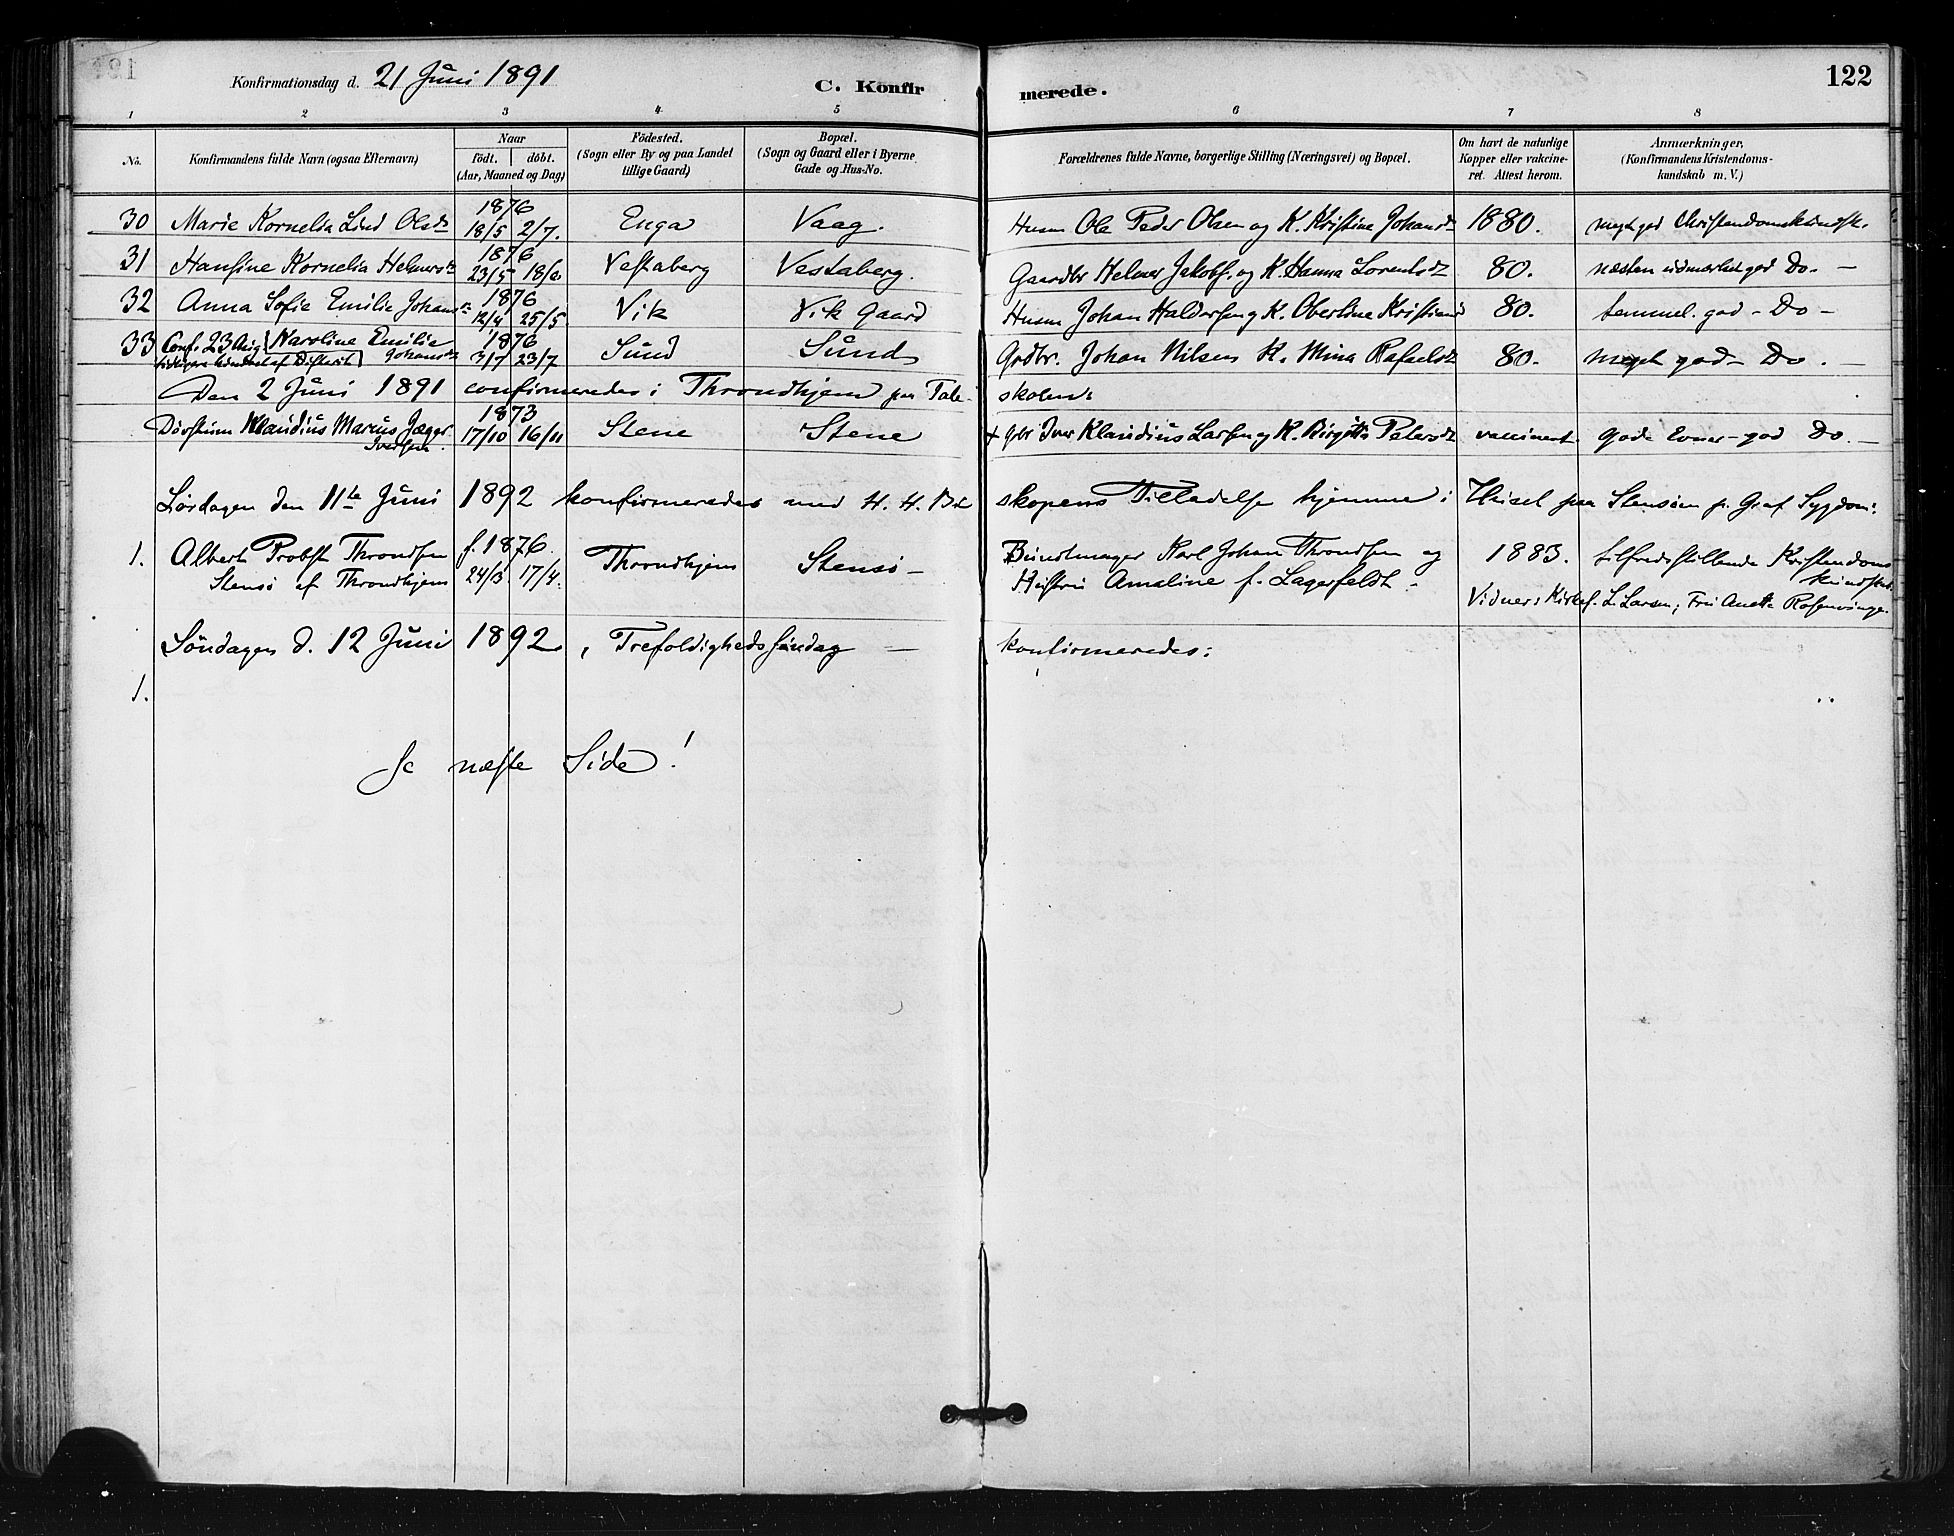 Konfirmationsdag d. 21 Juni 1891 C. Konfirmerede. 122
1 2 3 4 5 6 7 8
No. Konfirmandens fulde Navn (ogsaa Efternavn) Naar födt. döbt. (Aar, Maaned og Dag) Födested. (Sogn eller By og paa Landet tillige Gaard) Bopæl. (Sogn og Gaard eller i Byerne Gade og Hus-No. Forældrenes fulde Navne, borgerlige Stilling (Næringsvei) og Bopæl. Om havt de naturlige Kopper eller vakcineret. Attest herom. Anmærkninger, (Konfirmandens Kristendomskundskab m. V.)
30 Marie Kornelia Lind Olsdr 1876 18/5 2/7. Enga Vaag. Husm Ole Peder Olsen og K. Kristine Johansdr 1880. meget god Christendomskundsk.
31 Hansine Kornelia Helmersdr 1876 23/5 18/6 Vestaberg Vestaberg. Gaardbr Helmer Jakobs. og K. Hanna Lorentsdr 80. næsten udmærket god Do. —
32 Anna Sofie Emilie Johansdr 1876 12/4 25/5 Vik Vik Gaard Husm Johan Haldorsen og K. Obertine Kristiansd 80. temmel. god - Do -
33 Conf. 23 Aug tidligere hindret af Difterit Karoline Emilie Johansdr 1876 3/7 23/7 Sund Sund Grdbr. Johan Nilsen K. Mina Rafaelsdr 80. meget god - Do. —
Den 2 Juni 1891 confirmeredes i Throndhjem paa Taleskolen:
Døvstum Klaudius Marius Jæger Iversen. 1873 17/10 16/11 Stene Stene + Gbr Iver Klaudius Larsen og K. Birgitte Petersdr vaccineret gode Evner - god Do. —
Lørdagen den 11te Juni 1892 konfirmeredes med H. H. Biskopens Tilladelse hjemme i Huset paa Stensøen p. Gr. af Sygdom:
1. Albert Probst Throndsen f. 1876. Throndhjem Stensø - Bundtmager Karl Johan Throndsen og 1883. tilfredsstillende Kristendoms
Stensø af Throndhjem 24/3. 17/4. Hustru Amaline f. Lagerfeldt. kundskab.
Vidner: Kirkes. L. Larsen, Fru Anette Rosenvinge.
Søndagen d. 12 Juni 1892, Trefoldigheds Søndag — konfirmeredes:
1.
Se næste Side!